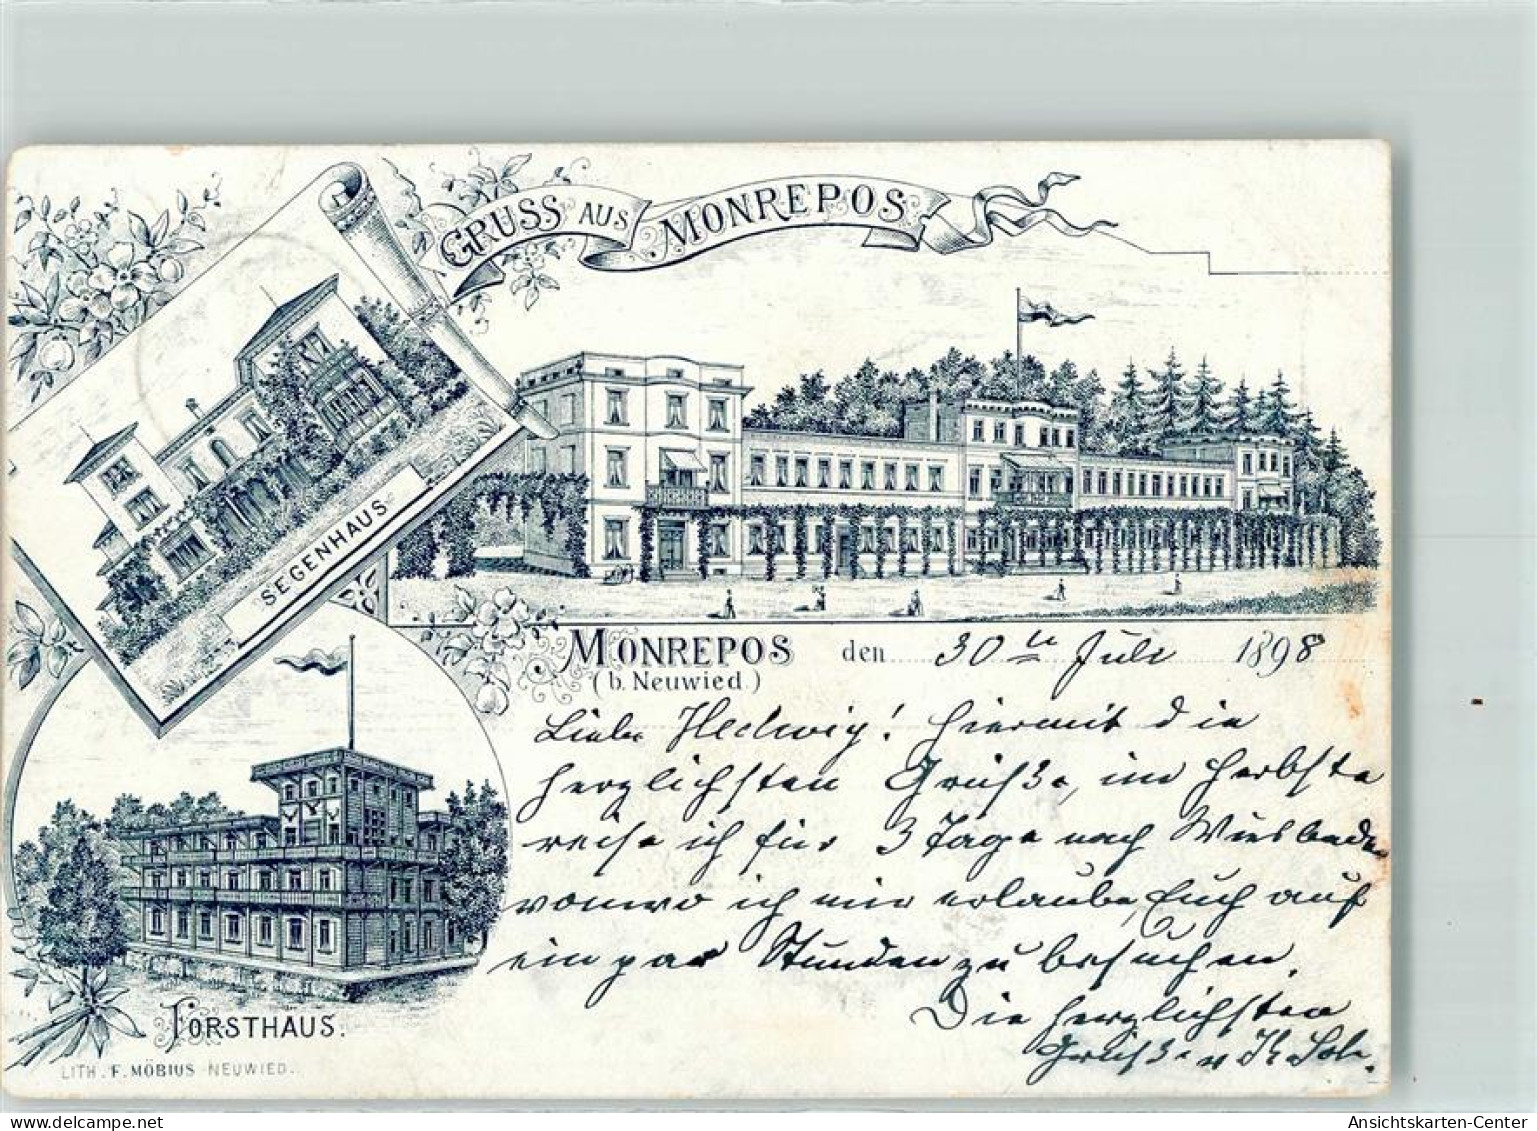 GRUSS AUS MONREPOS
SEGENHAUS
FORSTHAUS.
LITH. F. MÖBIUS NEUWIED.
MONREPOS den 30ten Juli 1898
(b. Neuwied.)
Liebe Hedwig! Hiermit die
herzlichsten Grüße, im Herbste
reise ich für 3 Tage nach Wiesbaden
wonwo ich mir erlaube, Euch auf
ein par Stunden zu besuchen.
Die herzlichsten
Grüße v
Ansichtskarten-Center